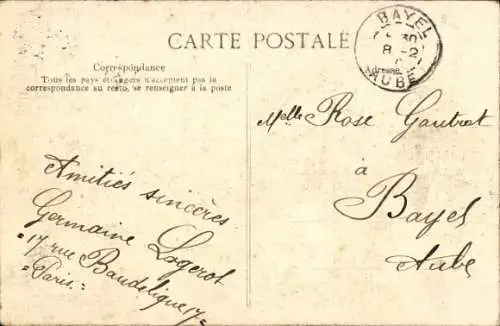 CARTE POSTALE
Correspondance
Tous les pays étrangers n'acceptent pas la
correspondance au recto, se renseigner à la poste
Amitiés sincères
Germaine Logerot
=17 rue Baudelique 17=
=Paris.=
BAYEL
8 -2
AUBE
Adresse
Melle Rose Gautrot
à
Bayel
Aube